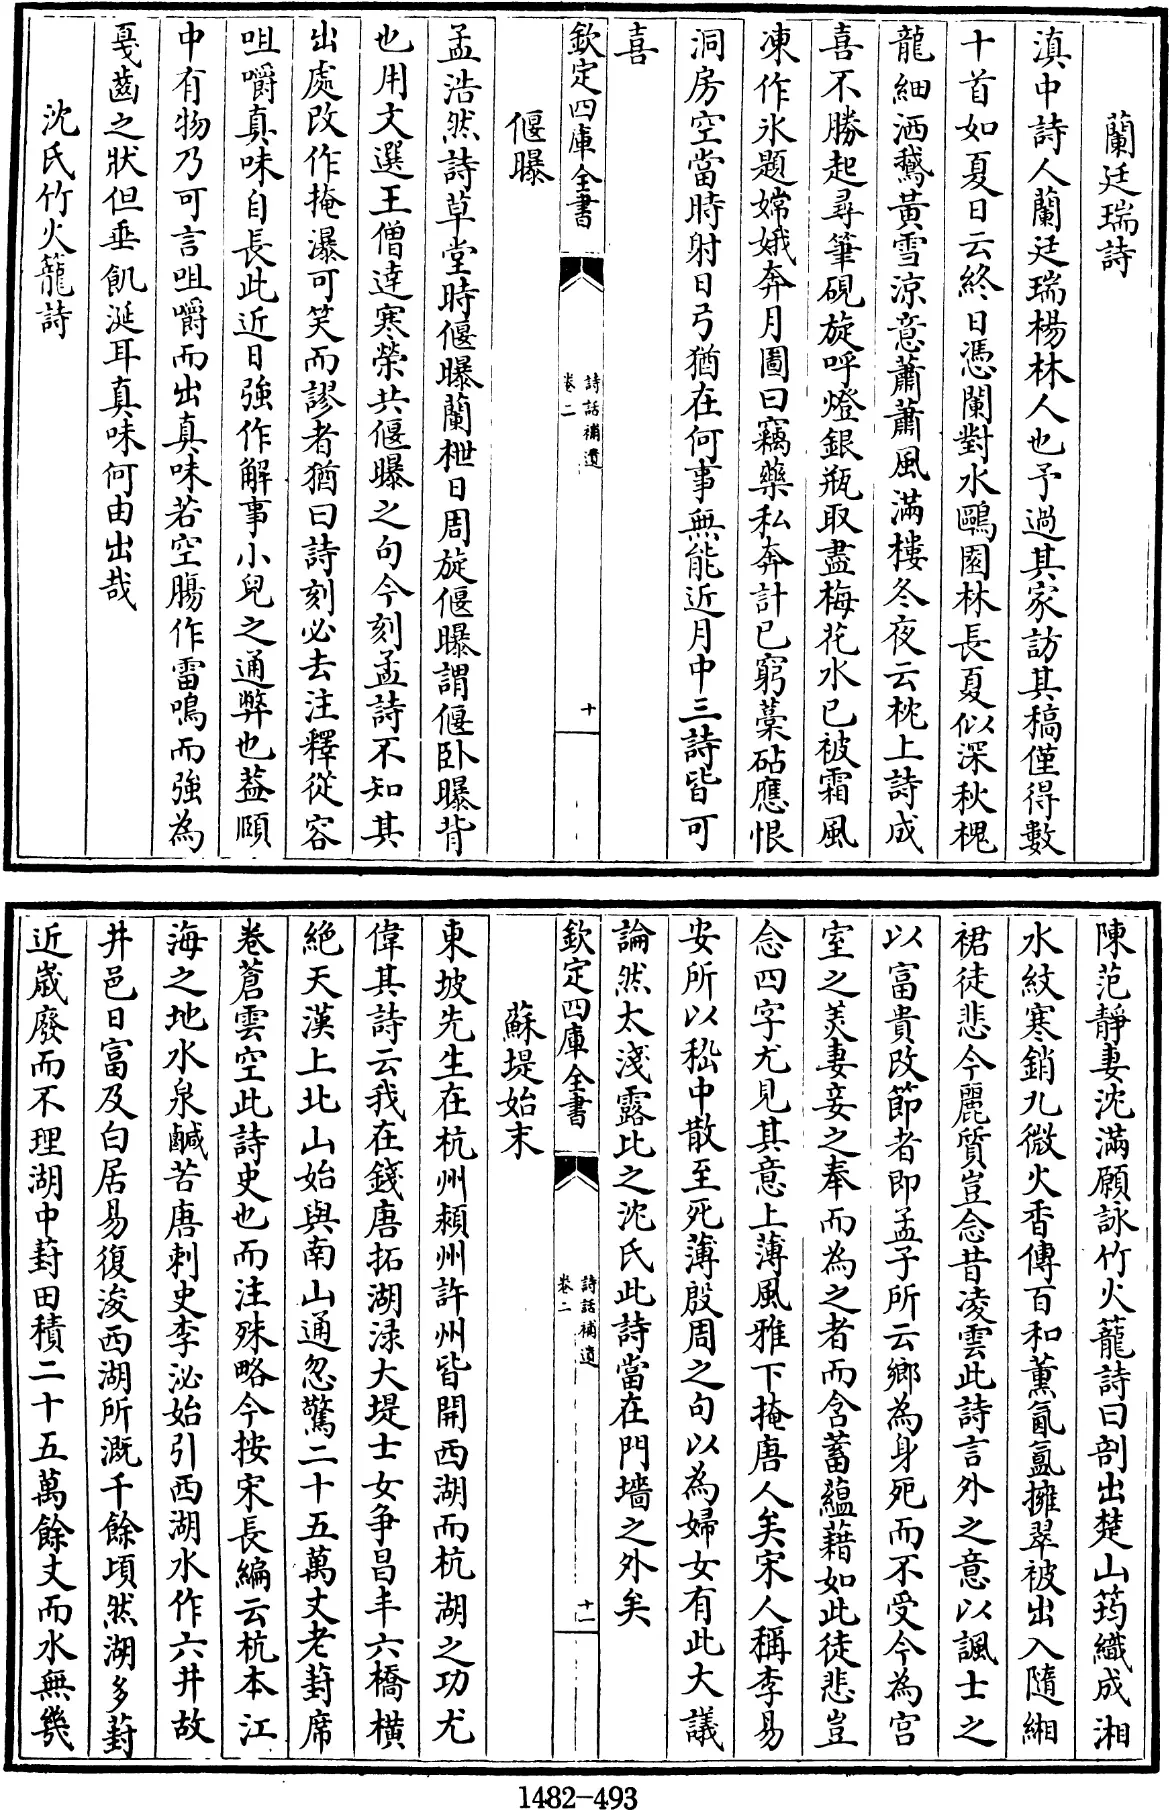 蘭廷瑞詩
滇中詩人蘭廷瑞楊林人也予過其家訪其稿僅得數
十首如夏日云終日憑闌對水鷗園林長夏似深秋槐
龍細洒鵞黄雪涼意蕭蕭風滿樓冬夜云枕上詩成
喜不勝起尋筆硯旋呼燈銀瓶取盡梅花水已被霜風
凍作氷題嫦娥奔月圖曰竊藥私奔計已窮藁砧應恨
洞房空當時射日弓猶在何事無能近月中三詩皆可
喜
欽定四庫全書
詩話補遺
卷二
十
偃曝
孟浩然詩草堂時偃曝蘭枻日周旋偃曝謂偃卧曝背
也用文選王僧達寒榮共偃曝之句今刻孟詩不知其
出處改作掩瀑可笑而謬者猶曰詩刻必去注釋從容
咀嚼真味自長此近日強作解事小兒之通弊也葢頤
中有物乃可言咀嚼而出真味若空腸作雷鳴而強為
戛齒之狀但垂飢涎耳真味何由出哉
沈氏竹火籠詩
陳范靜妻沈滿願詠竹火籠詩曰剖出楚山筠織成湘
水紋寒銷九微火香傳百和薰氤氳擁翠被出入隨緗
裙徒悲今麗質豈念昔凌雲此詩言外之意以諷士之
以富貴改節者即孟子所云鄉為身死而不受今為宫
室之羙妻妾之奉而為之者而含蓄蘊藉如此徒悲豈
念四字尤見其意上薄風雅下掩唐人矣宋人稱李易
安所以嵇中散至死薄殷周之句以為婦女有此大議
論然太淺露比之沈氏此詩當在門墻之外矣
欽定四庫全書
詩話補遺
卷二
十一
蘇堤始末
東坡先生在杭州潁州許州皆開西湖而杭湖之功尤
偉其詩云我在錢唐拓湖淥大堤士女争昌丰六橋橫
絶天漢上北山始與南山通忽驚二十五萬丈老葑席
卷蒼雲空此詩史也而注殊略今按宋長編云杭本江
海之地水泉鹹苦唐刺史李泌始引西湖水作六井故
井邑日富及白居易復浚西湖所溉千餘頃然湖多葑
近歳廢而不理湖中葑田積二十五萬餘丈而水無幾
1482-493